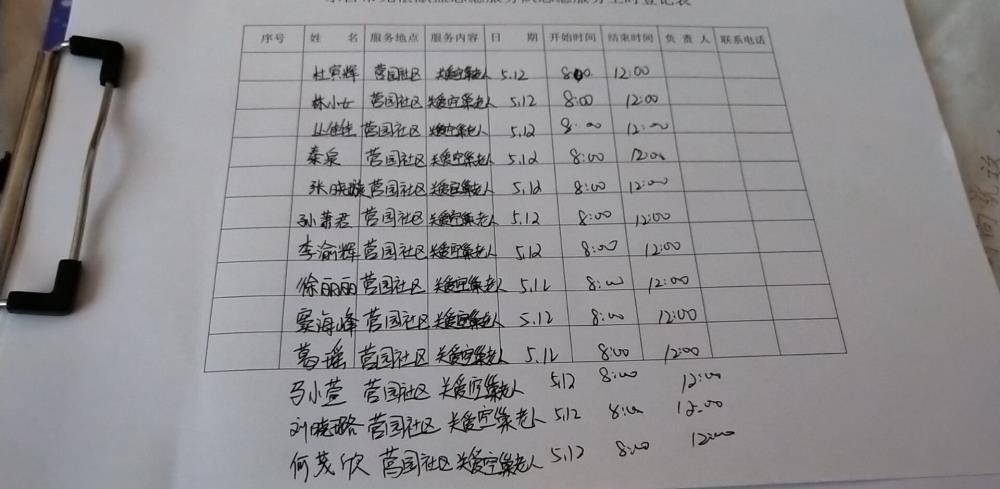 志愿服务队志愿服务工时登记表
序号 姓 名 服务地点 服务内容 日 期 开始时间 结束时间 负 责 人 联系电话
杜寅辉 营园社区 关爱空巢老人 5.12 8:00 12:00
林小女 营园社区 关爱空巢老人 5.12 8:00 12:00
丛佳佳 营园社区 关爱空巢老人 5.12 8:00 12:00
秦泉 营园社区 关爱空巢老人 5.12 8:00 12:00
张晓璇 营园社区 关爱空巢老人 5.12 8:00 12:00
孙萧君 营园社区 关爱空巢老人 5.12 8:00 12:00
李渝辉 营园社区 关爱空巢老人 5.12 8:00 12:00
徐丽丽 营园社区 关爱空巢老人 5.12 8:00 12:00
窦海峰 营园社区 关爱空巢老人 5.12 8:00 12:00
葛瑶 营园社区 关爱空巢老人 5.12 8:00 12:00
马小萱 营园社区 关爱空巢老人 5.12 8:00 12:00
刘晓璐 营园社区 关爱空巢老人 5.12 8:00 12:00
何茂欣 营园社区 关爱空巢老人 5.12 8:00 12:00